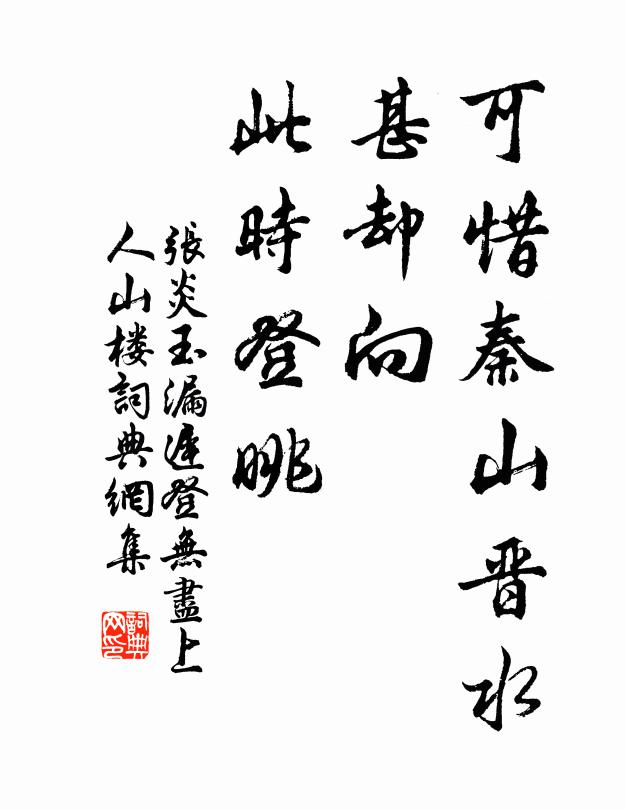 可惜秦山晋水
甚却向
此時登眺
張炎玉漏遲登無盡上
人山楼詞典網集
詞典网印